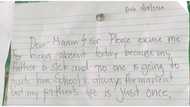 Dear Maam & Sir Please excuse me
for being absent today because my
father is sick and no one is going to
him. School is always for mavarit
but my father's life is just once,